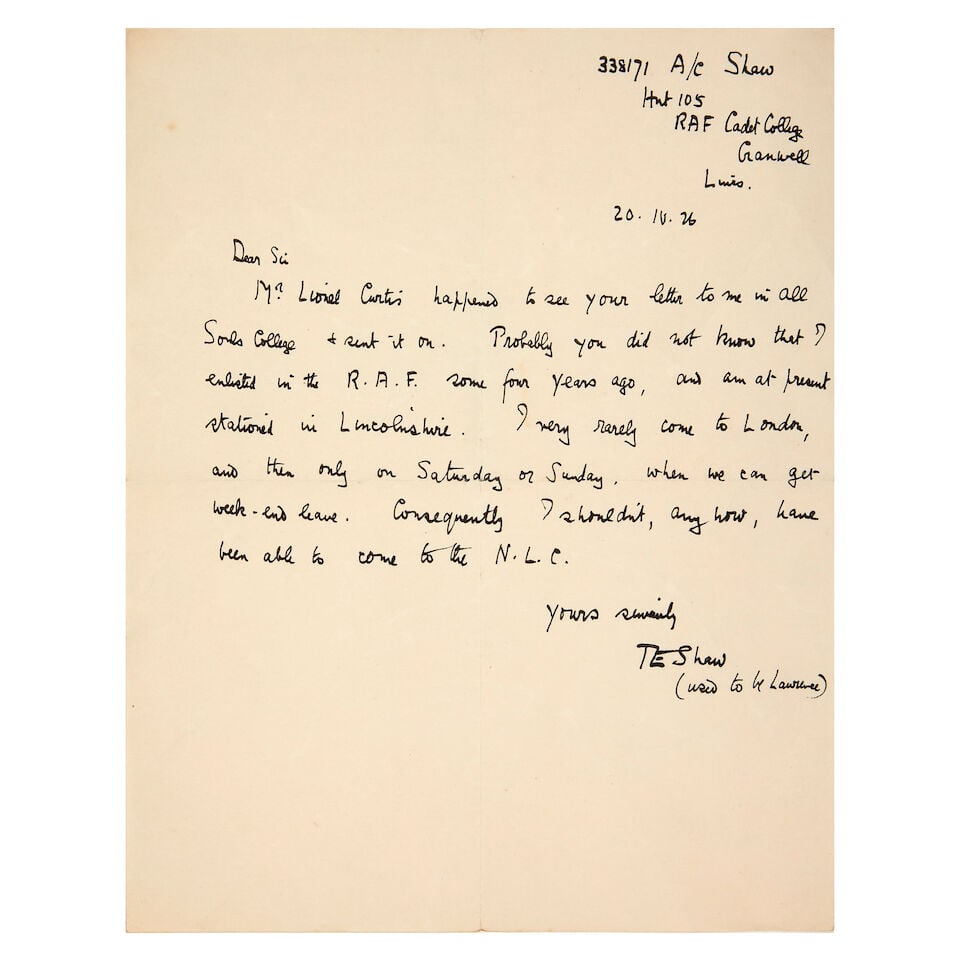 338171 A/c Shaw
Hut 105
RAF Cadet College
Cranwell
Lincs.
20. IV. 26
Dear Sir
Mr. Lionel Curtis happened to see your letter to me in All
Souls College & sent it on. Probably you did not know that I
enlisted in the R.A.F. some four years ago, and am at present
stationed in Lincolnshire. I very rarely come to London,
and then only on Saturday or Sunday, when we can get
week-end leave. Consequently I shouldn't, any how, have
been able to come to the N.L.C.
Yours sincerely
TEShaw
(used to be Lawrence)